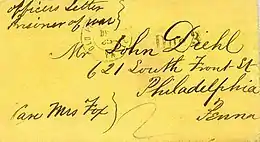 Officers Letter
Prisoner of war
Mr John Diehl
621 South Front St
Philadelphia
Penna
Care Mrs Fox